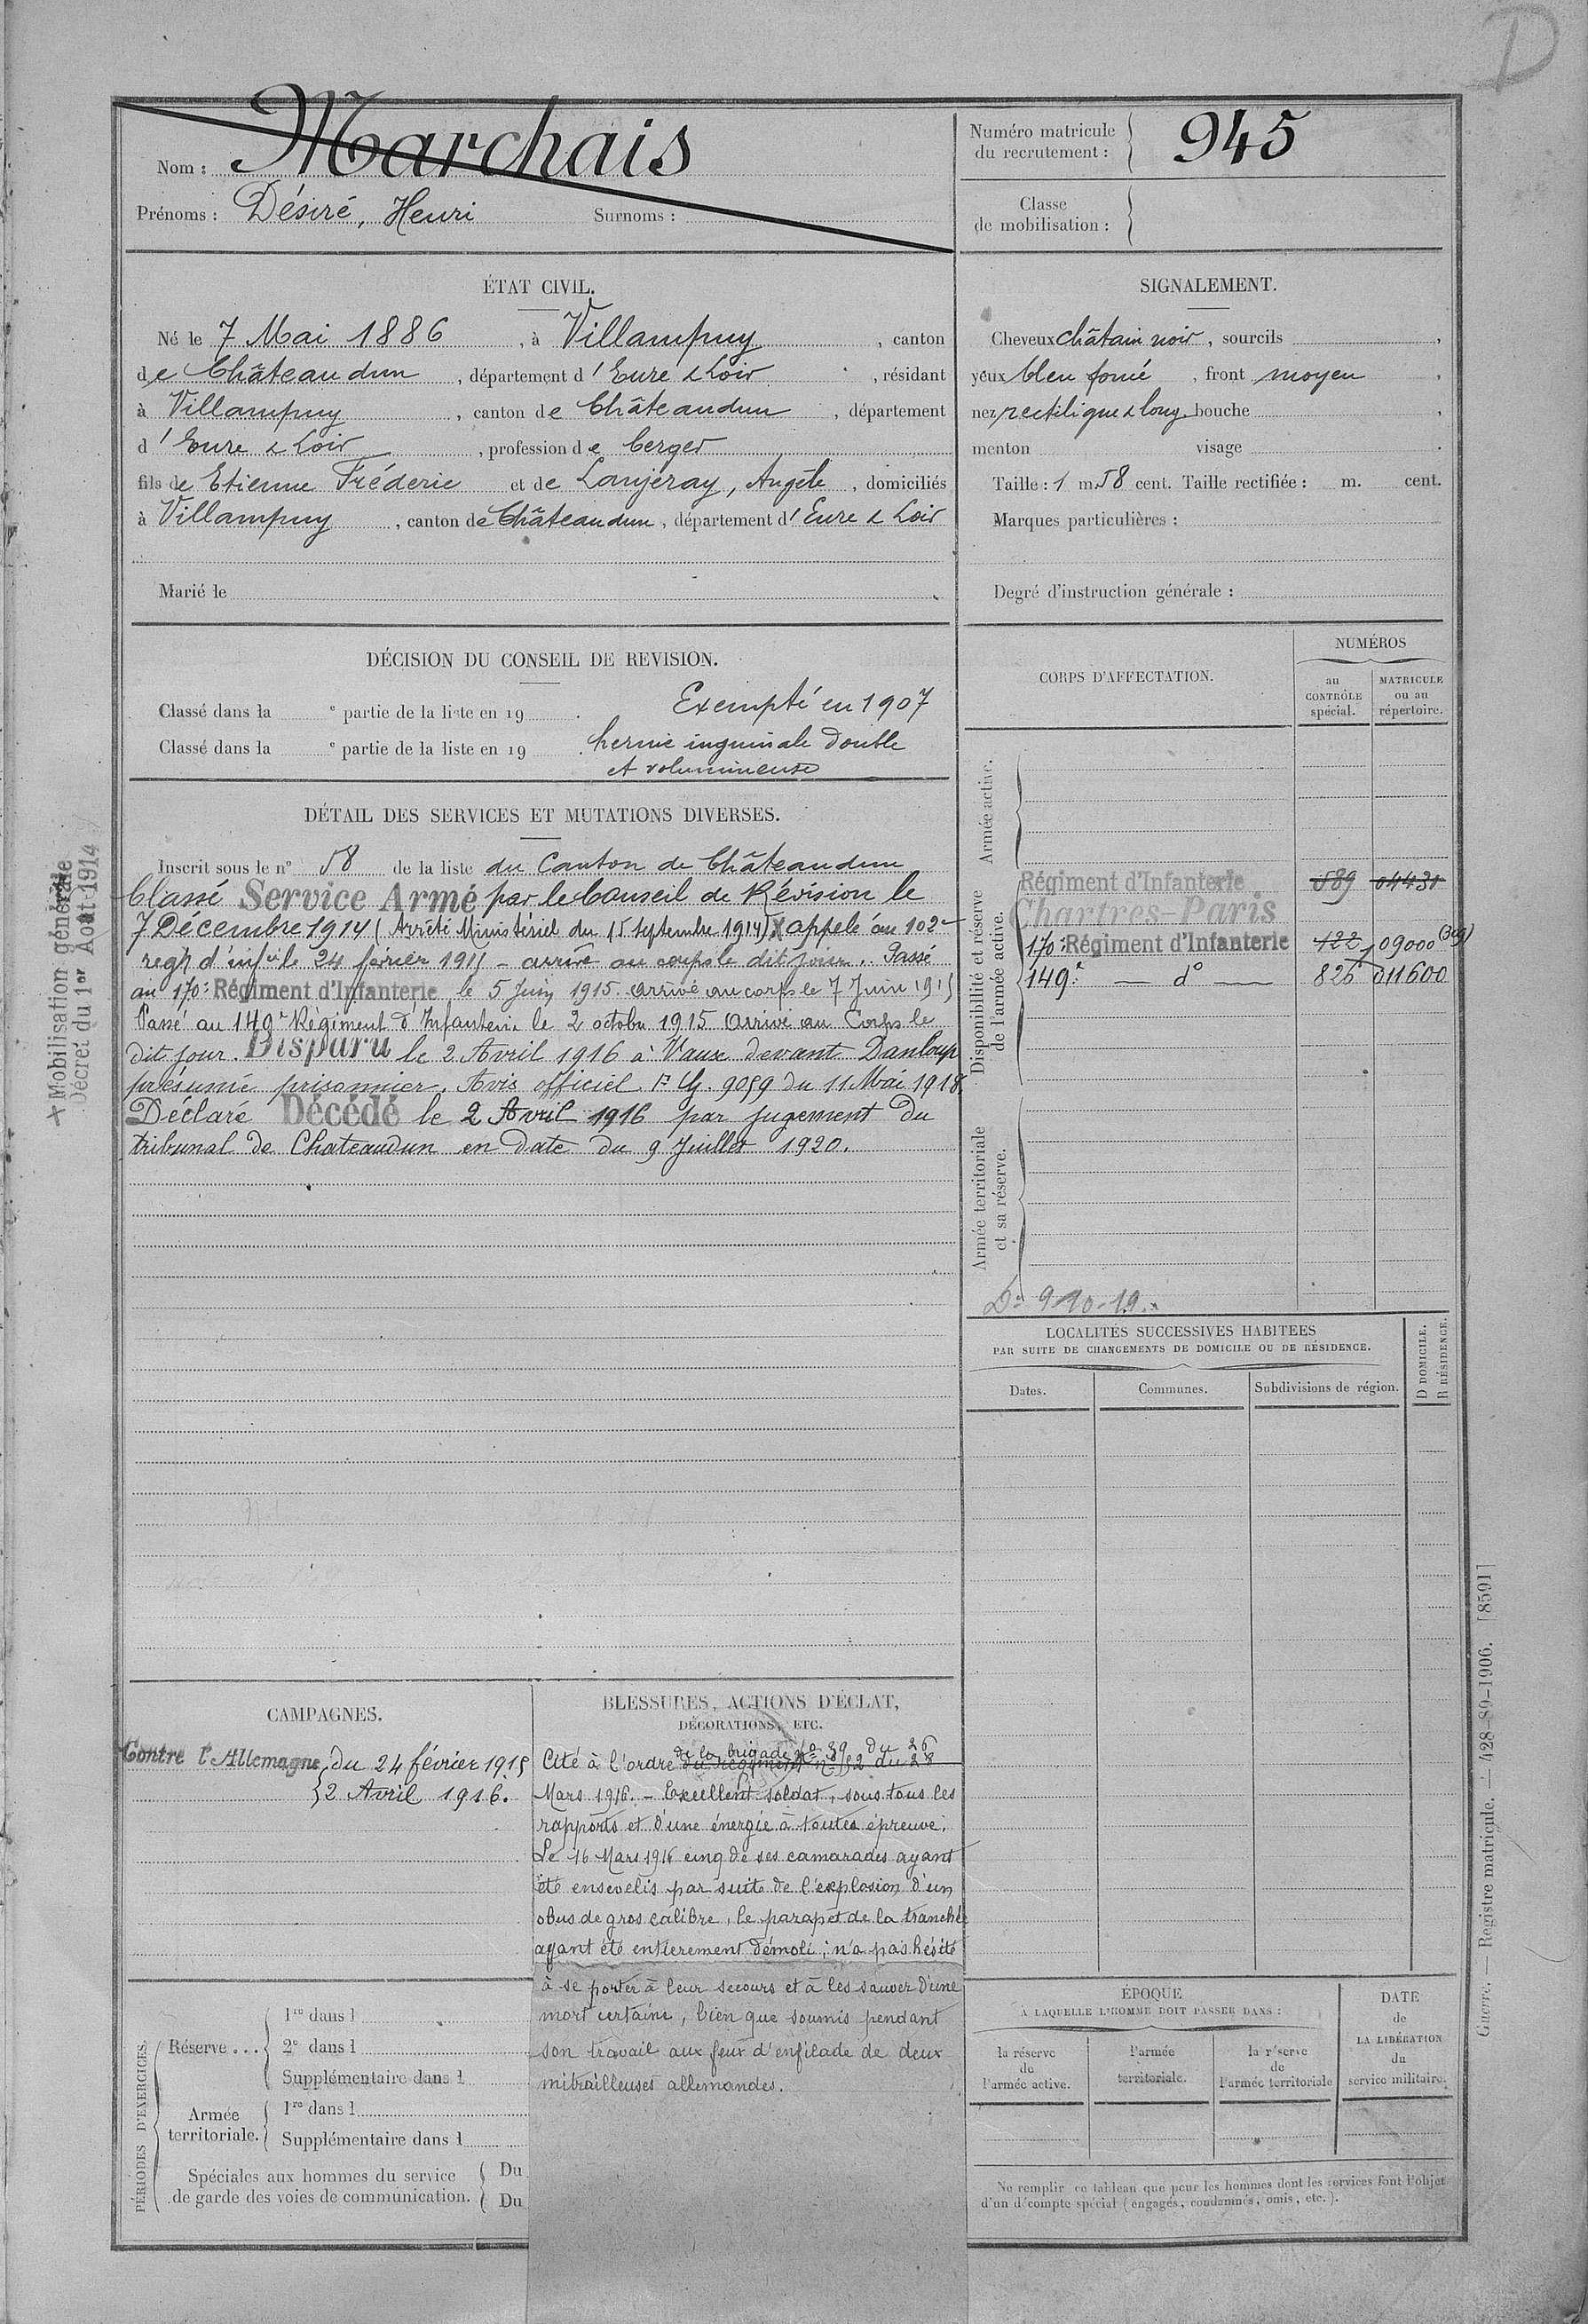 D
Nom : Marchais
Prénoms : Désiré, Henri Surnoms :
Numéro matricule du recrutement : 945
Classe de mobilisation :
ÉTAT CIVIL.
Né le 7 Mai 1886, à Villampuy, canton
de Châteaudun, département d'Eure & Loir, résidant
à Villampuy, canton de Châteaudun, département
d'Eure & Loir, profession de berger
fils de Etienne Fréderic et de Lanjeray, Angèle, domiciliés
à Villampuy, canton de Châteaudun, département d'Eure & Loir
Marié le
SIGNALEMENT.
Cheveux châtain noir, sourcils ,
yeux bleu foncé, front moyen ,
nez rectiligne & long, bouche ,
menton visage .
Taille : 1 m 58 cent. Taille rectifiée : m. cent.
Marques particulières :
Degré d'instruction générale :
DÉCISION DU CONSEIL DE REVISION.
Classé dans la e partie de la liste en 19 . Exempté en 1907
Classé dans la e partie de la liste en 19 . hernie inguinale double
et volumineuse
DÉTAIL DES SERVICES ET MUTATIONS DIVERSES.
Inscrit sous le n° 58 de la liste du Canton de Châteaudun
Classé Service Armé par le Conseil de Révision le
7 Décembre 1914 (Arrêté Ministériel du 15 septembre 1914) X appelé au 102e
regt d'infie le 24 février 1915 - arrivé au corps le dit jour. Passé
au 170e Régiment d'Infanterie le 5 Juin 1915. arrivé au corps le 7 Juin 1915
Passé au 149e Régiment d'Infanterie le 2 octobre 1915 Arrivé au Corps le
dit jour. Disparu le 2 Avril 1916 à Vaux devant Danloup
présumé prisonnier. Avis officiel. F. 9059 du 11 Mai 1918
Déclaré Décédé le 2 Avril 1916 par jugement du
tribunal de Chateaudun en date du 9 Juillet 1920.
X Mobilisation générale
Décret du 1er Août 1914
CORPS D'AFFECTATION.
NUMÉROS
au CONTRÔLE spécial.
MATRICULE ou au répertoire.
Armée active.
Disponibilité et réserve de l'armée active.
Régiment d'Infanterie 589 04431
Chartres-Paris
170e Régiment d'Infanterie 422 09000
149e — d° — 826 011600
Armée territoriale et sa réserve.
9-10-19
LOCALITÉS SUCCESSIVES HABITÉES
PAR SUITE DE CHANGEMENTS DE DOMICILE OU DE RÉSIDENCE.
Dates. Communes. Subdivisions de région. D DOMICILE. R RÉSIDENCE.
CAMPAGNES.
Contre l'Allemagne du 24 février 1915
2 Avril 1916.
BLESSURES, ACTIONS D'ÉCLAT,
DÉCORATIONS, ETC.
de la brigade N° 39 du 26
Cité à l'ordre du régiment n° 152 du 28
Mars 1916. - Excellent soldat, sous tous les
rapports et d'une énergie à toutes épreuve.
Le 16 Mars 1916 cinq de ses camarades ayant
été ensevelis par suite de l'explosion d'un
obus de gros calibre, le parapet de la tranchée
ayant été entièrement démoli ; n'a pas hésité
à se porter à leur secours et à les sauver d'une
mort certaine, bien que soumis pendant
son travail aux feux d'enfilade de deux
mitrailleuses allemandes.
PÉRIODES D'EXERCICES.
Réserve ...
1re dans l
2e dans l
Supplémentaire dans l
Armée territoriale.
1re dans l
Supplémentaire dans l
Spéciales aux hommes du service
de garde des voies de communication.
Du
Du
ÉPOQUE
À LAQUELLE L'HOMME DOIT PASSER DANS :
la réserve de l'armée active.
l'armée territoriale.
la réserve de l'armée territoriale
DATE de LA LIBÉRATION du service militaire.
Ne remplir ce tableau que pour les hommes dont les services font l'objet
d'un décompte spécial (engagés, condamnés, omis, etc.).
Guerre. — Registre matricule. — 428-89-1906. [8591]